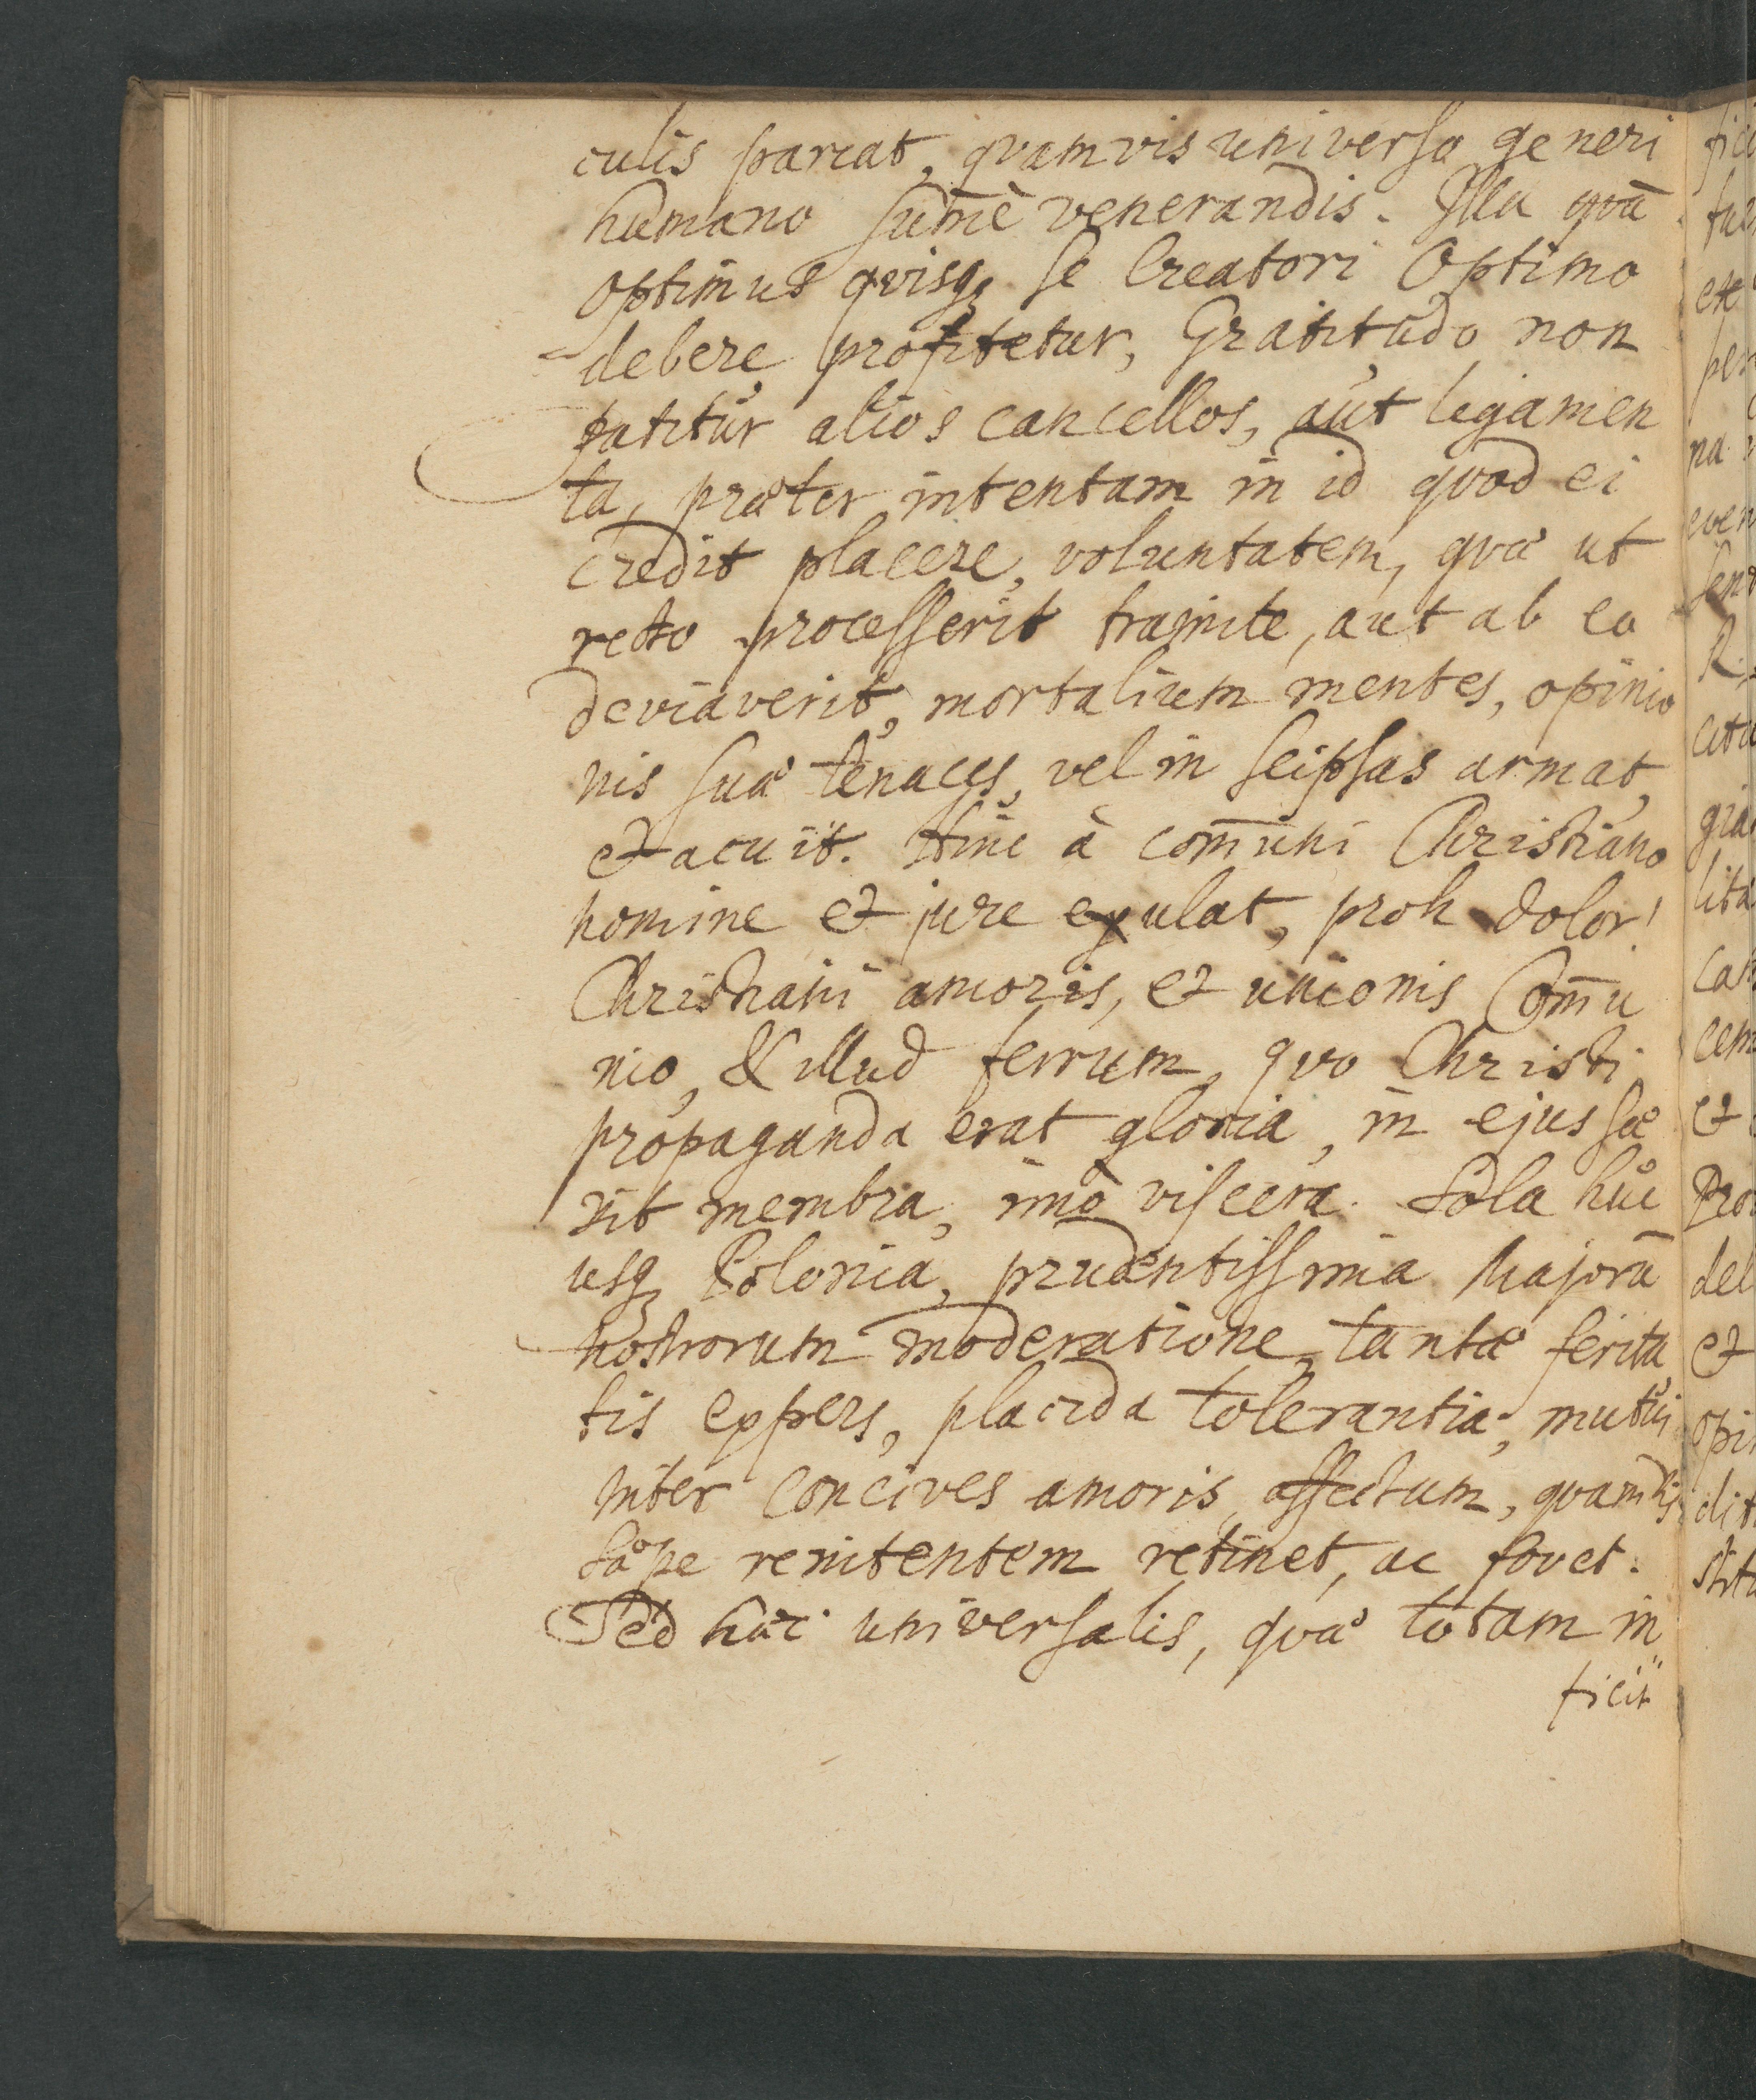 culis parcat, quamvis universo generi
humano summè venerandis. Illa quā
optimus quisq; se Creatori Optimo
debere profitetur, Gratitudo non
patitur alios cancellos, aut ligamen
ta, præter intentam in id quod ei
credit placere, voluntatem, quæ ut
recto processerit tramite, aut ab eo
deviaverit, mortalium mentes, opinio
nis suæ tenaces, vel in seipsas armat,
et acuit. Hinc à com̄uni Christiano
homine et jure exulat, proh dolor!
Christiani amoris, et unionis Com̄u
nio, & illud ferrum, quo Christi
propaganda erat gloria, in ejus sæ
vit membra, imò viscera. Sola huc
usq; Polonia, prudentissima Majorū
nostrorum moderatione, tantæ ferita
tis expers, placida tolerantia, mutui
inter concives amoris affectum, quamvis
sæpe renitentem retinet, ac fovet.
Sed hæc universalis, quæ totam in
ficit